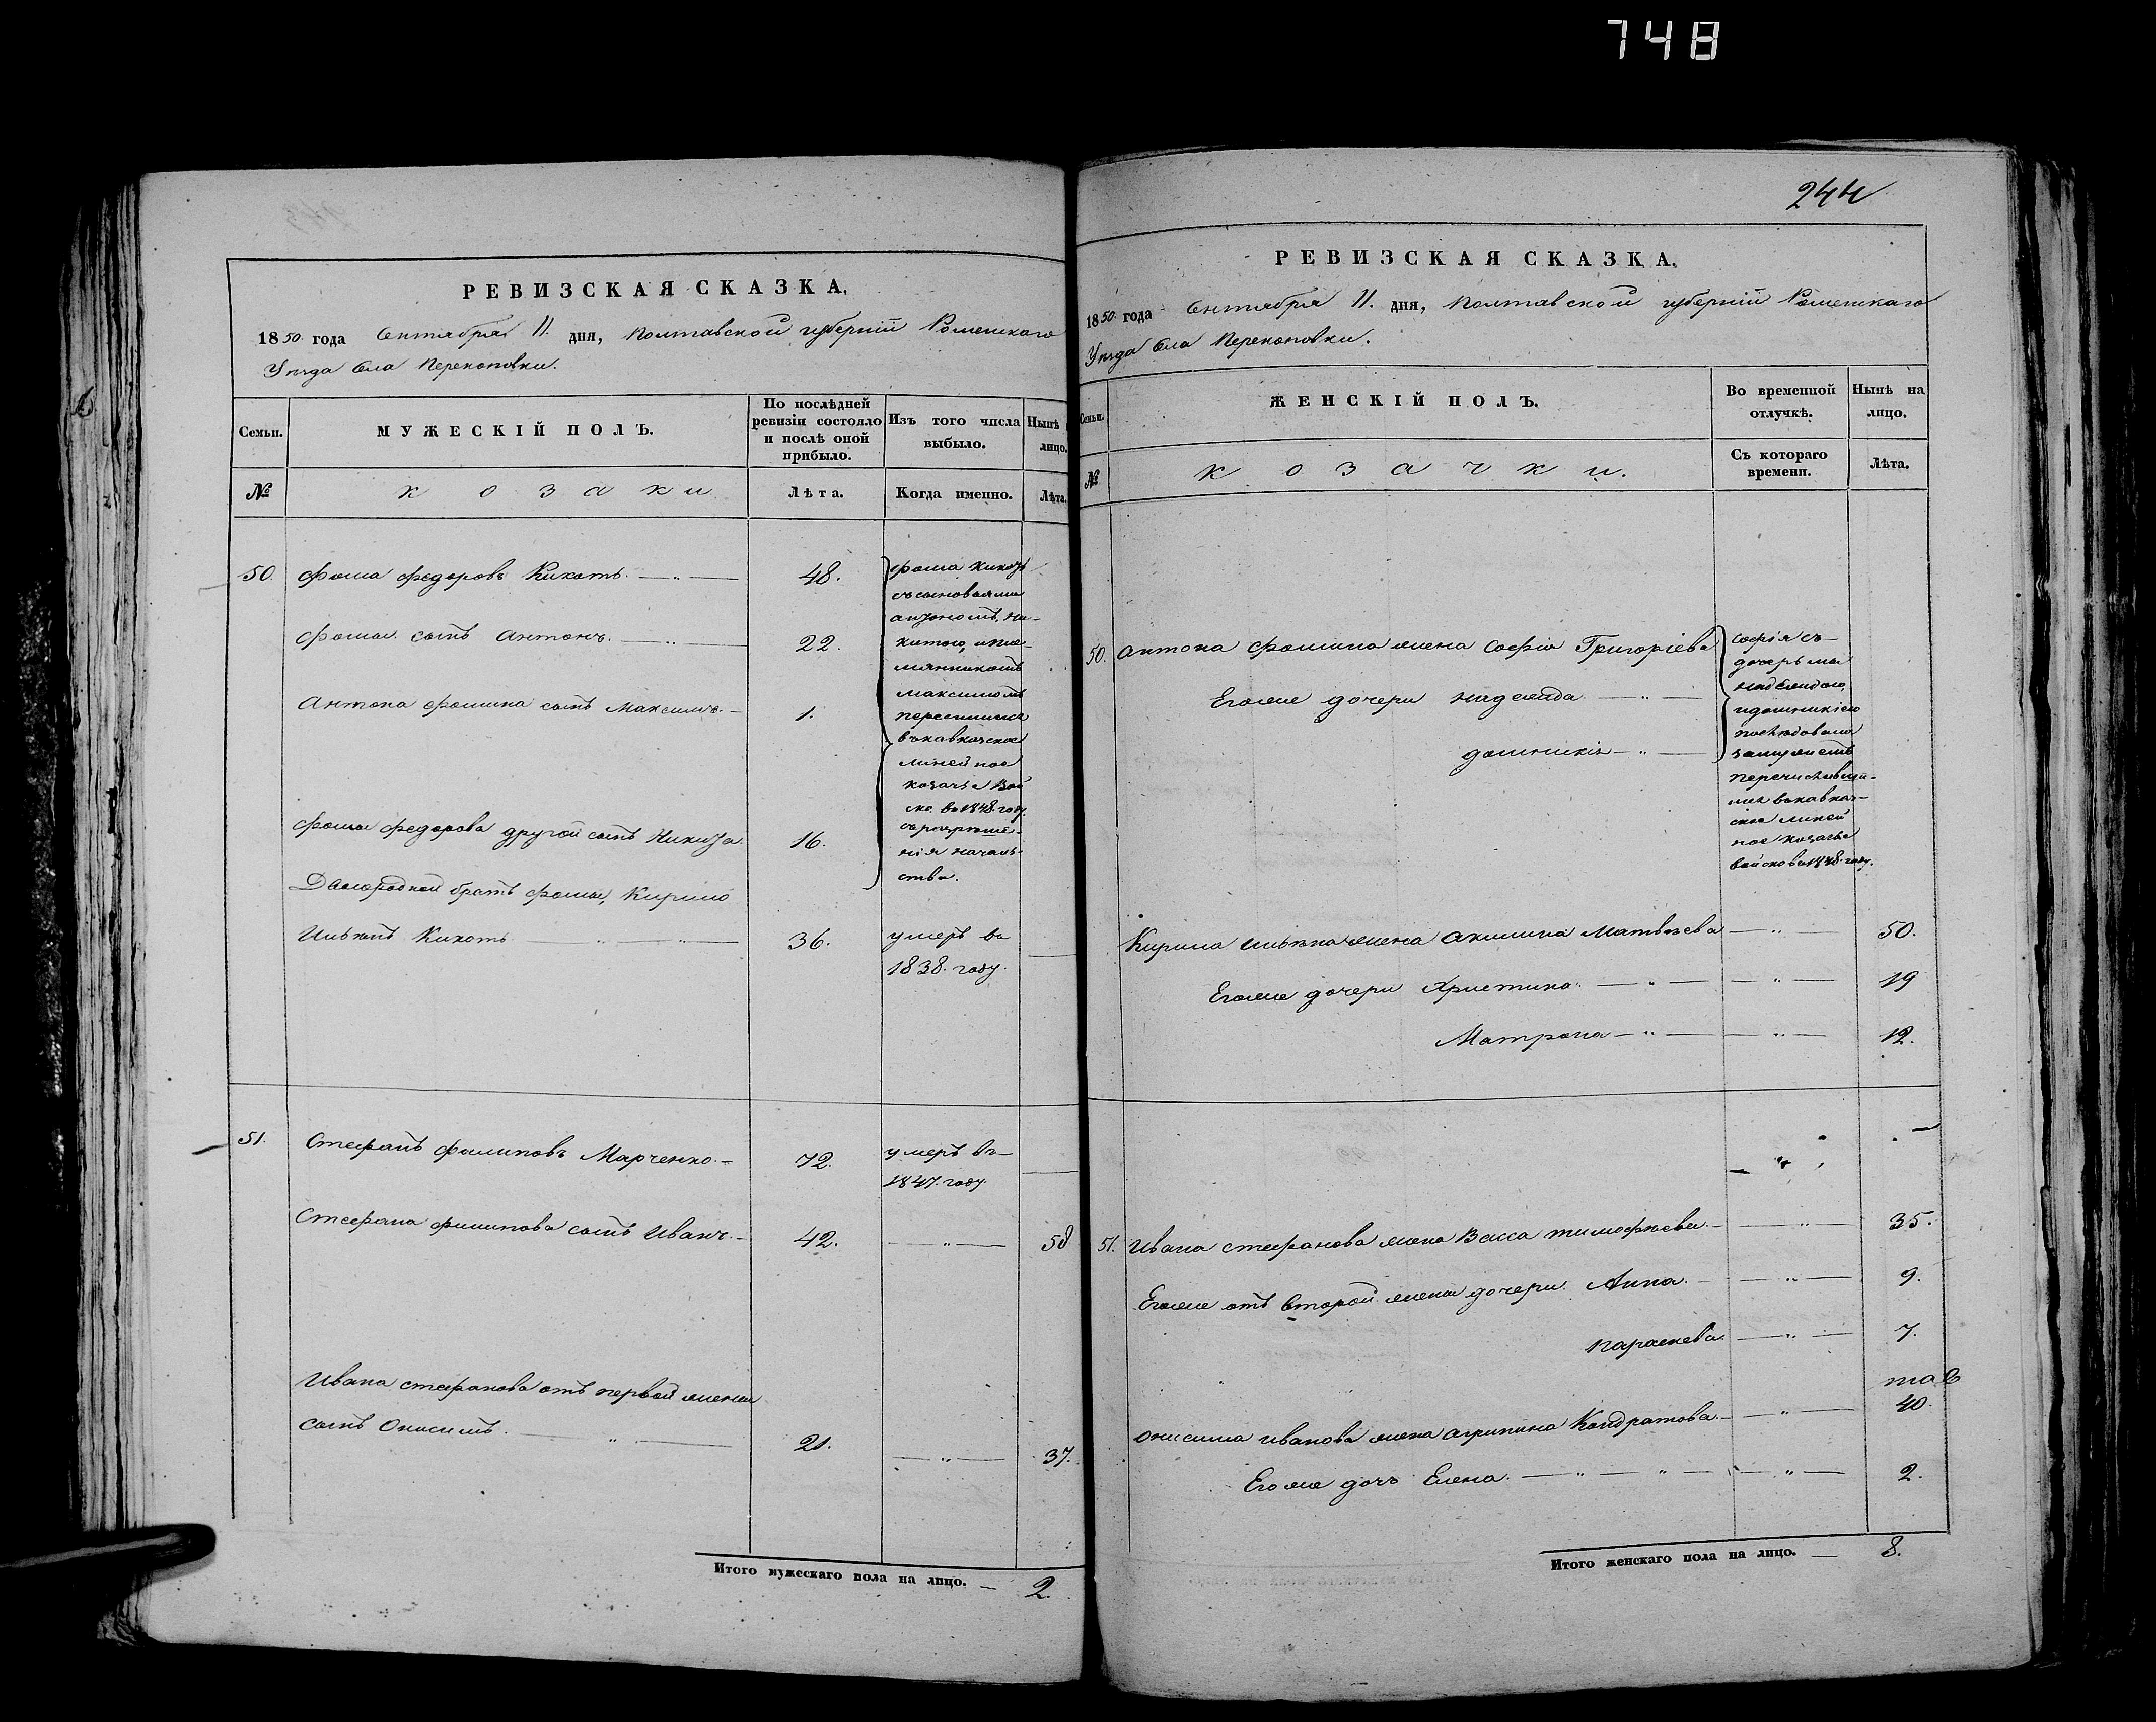 748
РЕВИЗСКАЯ СКАЗКА.
1850 года Сентября 11. дня, Полтавской губерніи Роменскаго
Уѣзда Села Перекоповки.
Семьи.
МУЖЕСКІЙ ПОЛЪ.
По послѣдней ревизіи состояло и послѣ оной прибыло.
Изъ того числа выбыло.
Нынѣ лицо.
№
козаки
Лѣта.
Когда именно.
Лѣта.
50. Фома Федоровъ Кихоть 48.
Фомы сынъ Антонъ. 22.
Антона Фомина сынъ Максимъ. 1.
Фомы Федорова другой сынъ Никита 16.
Фома Кихоть
съ сыновьями
Антономъ, Ни-
китою, и пле-
мянникомъ
Максимомъ
в Кавказское
линейное
козачье Вой
ско въ 1848 году
съ разреше-
нія началь-
ства.
Двоюродной братъ Фомы, Кирило
Кихоть 36. умеръ въ
1838. году.
51. Стефанъ Филиповъ Марченко. 72. умеръ въ
1847. году.
Стефана Филипова сынъ Иванъ. 42. 58
Ивана Стефанова отъ первой жены
сынъ Онисимъ. 21. 37.
Итого мужескаго пола на лицо. 2.
244
РЕВИЗСКАЯ СКАЗКА.
1850 года Сентября 11. дня, Полтавской губерніи Роменскаго
Уѣзда Села Перекоповки.
Семьи.
ЖЕНСКІЙ ПОЛЪ.
Во временной отлучкѣ.
Нынѣ на лицо.
№
козачки.
Съ котораго времени.
Лѣта.
50. Антона Фомина жена Софія Григоріева
Его же дочери Надежда
Домникія
Софія съ
дочерьми
Надеждою,
и Домникіею
последовала
за мужемъ
перечислившим-
ся въ Кавказ-
ское линей
ное козачье
войско въ 1848. году.
жена Акилина Матвѣева 50.
Его же дочери Христина 19
Матрона 12.
51. Ивана Стефанова жена Васса Тимофѣева 35.
Его же отъ второй жены дочери Анна. 9.
Параскева 7.
Онисима Иванова жена Агрипина Кондратова 40.
Его же дочь Елена. 2.
Итого женскаго пола на лицо. 8.